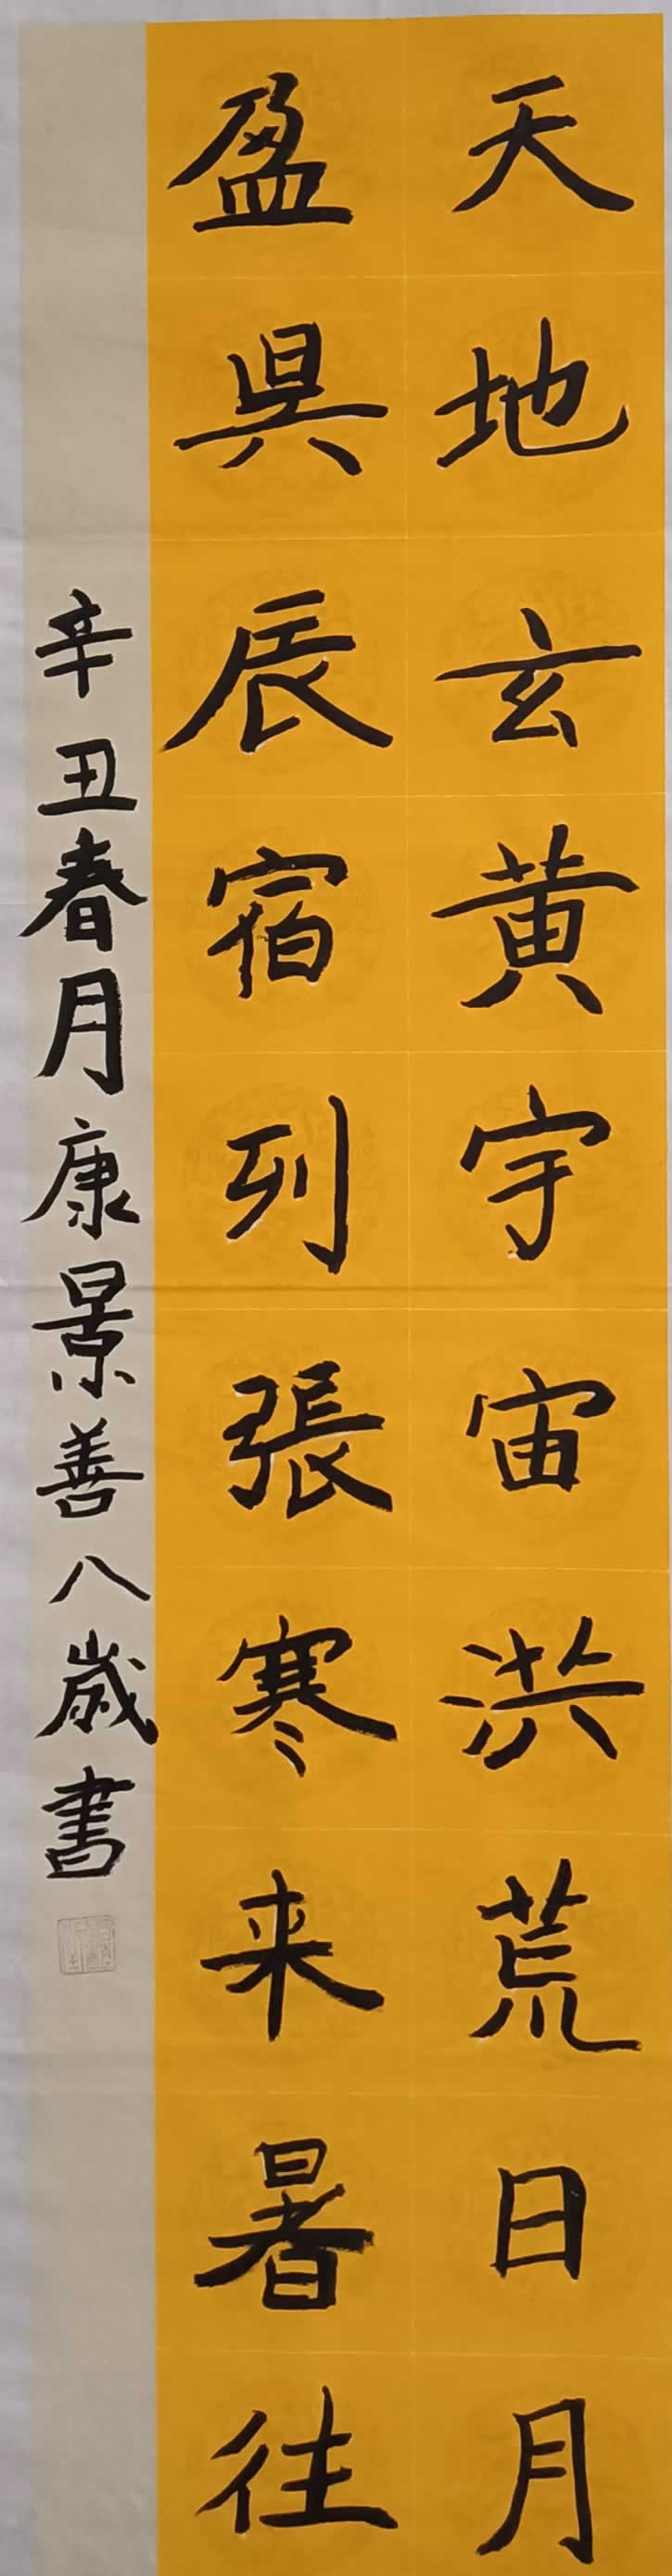 天地玄黄宇宙洪荒日月
盈昃辰宿列張寒来暑往
辛丑春月康景善八歲書